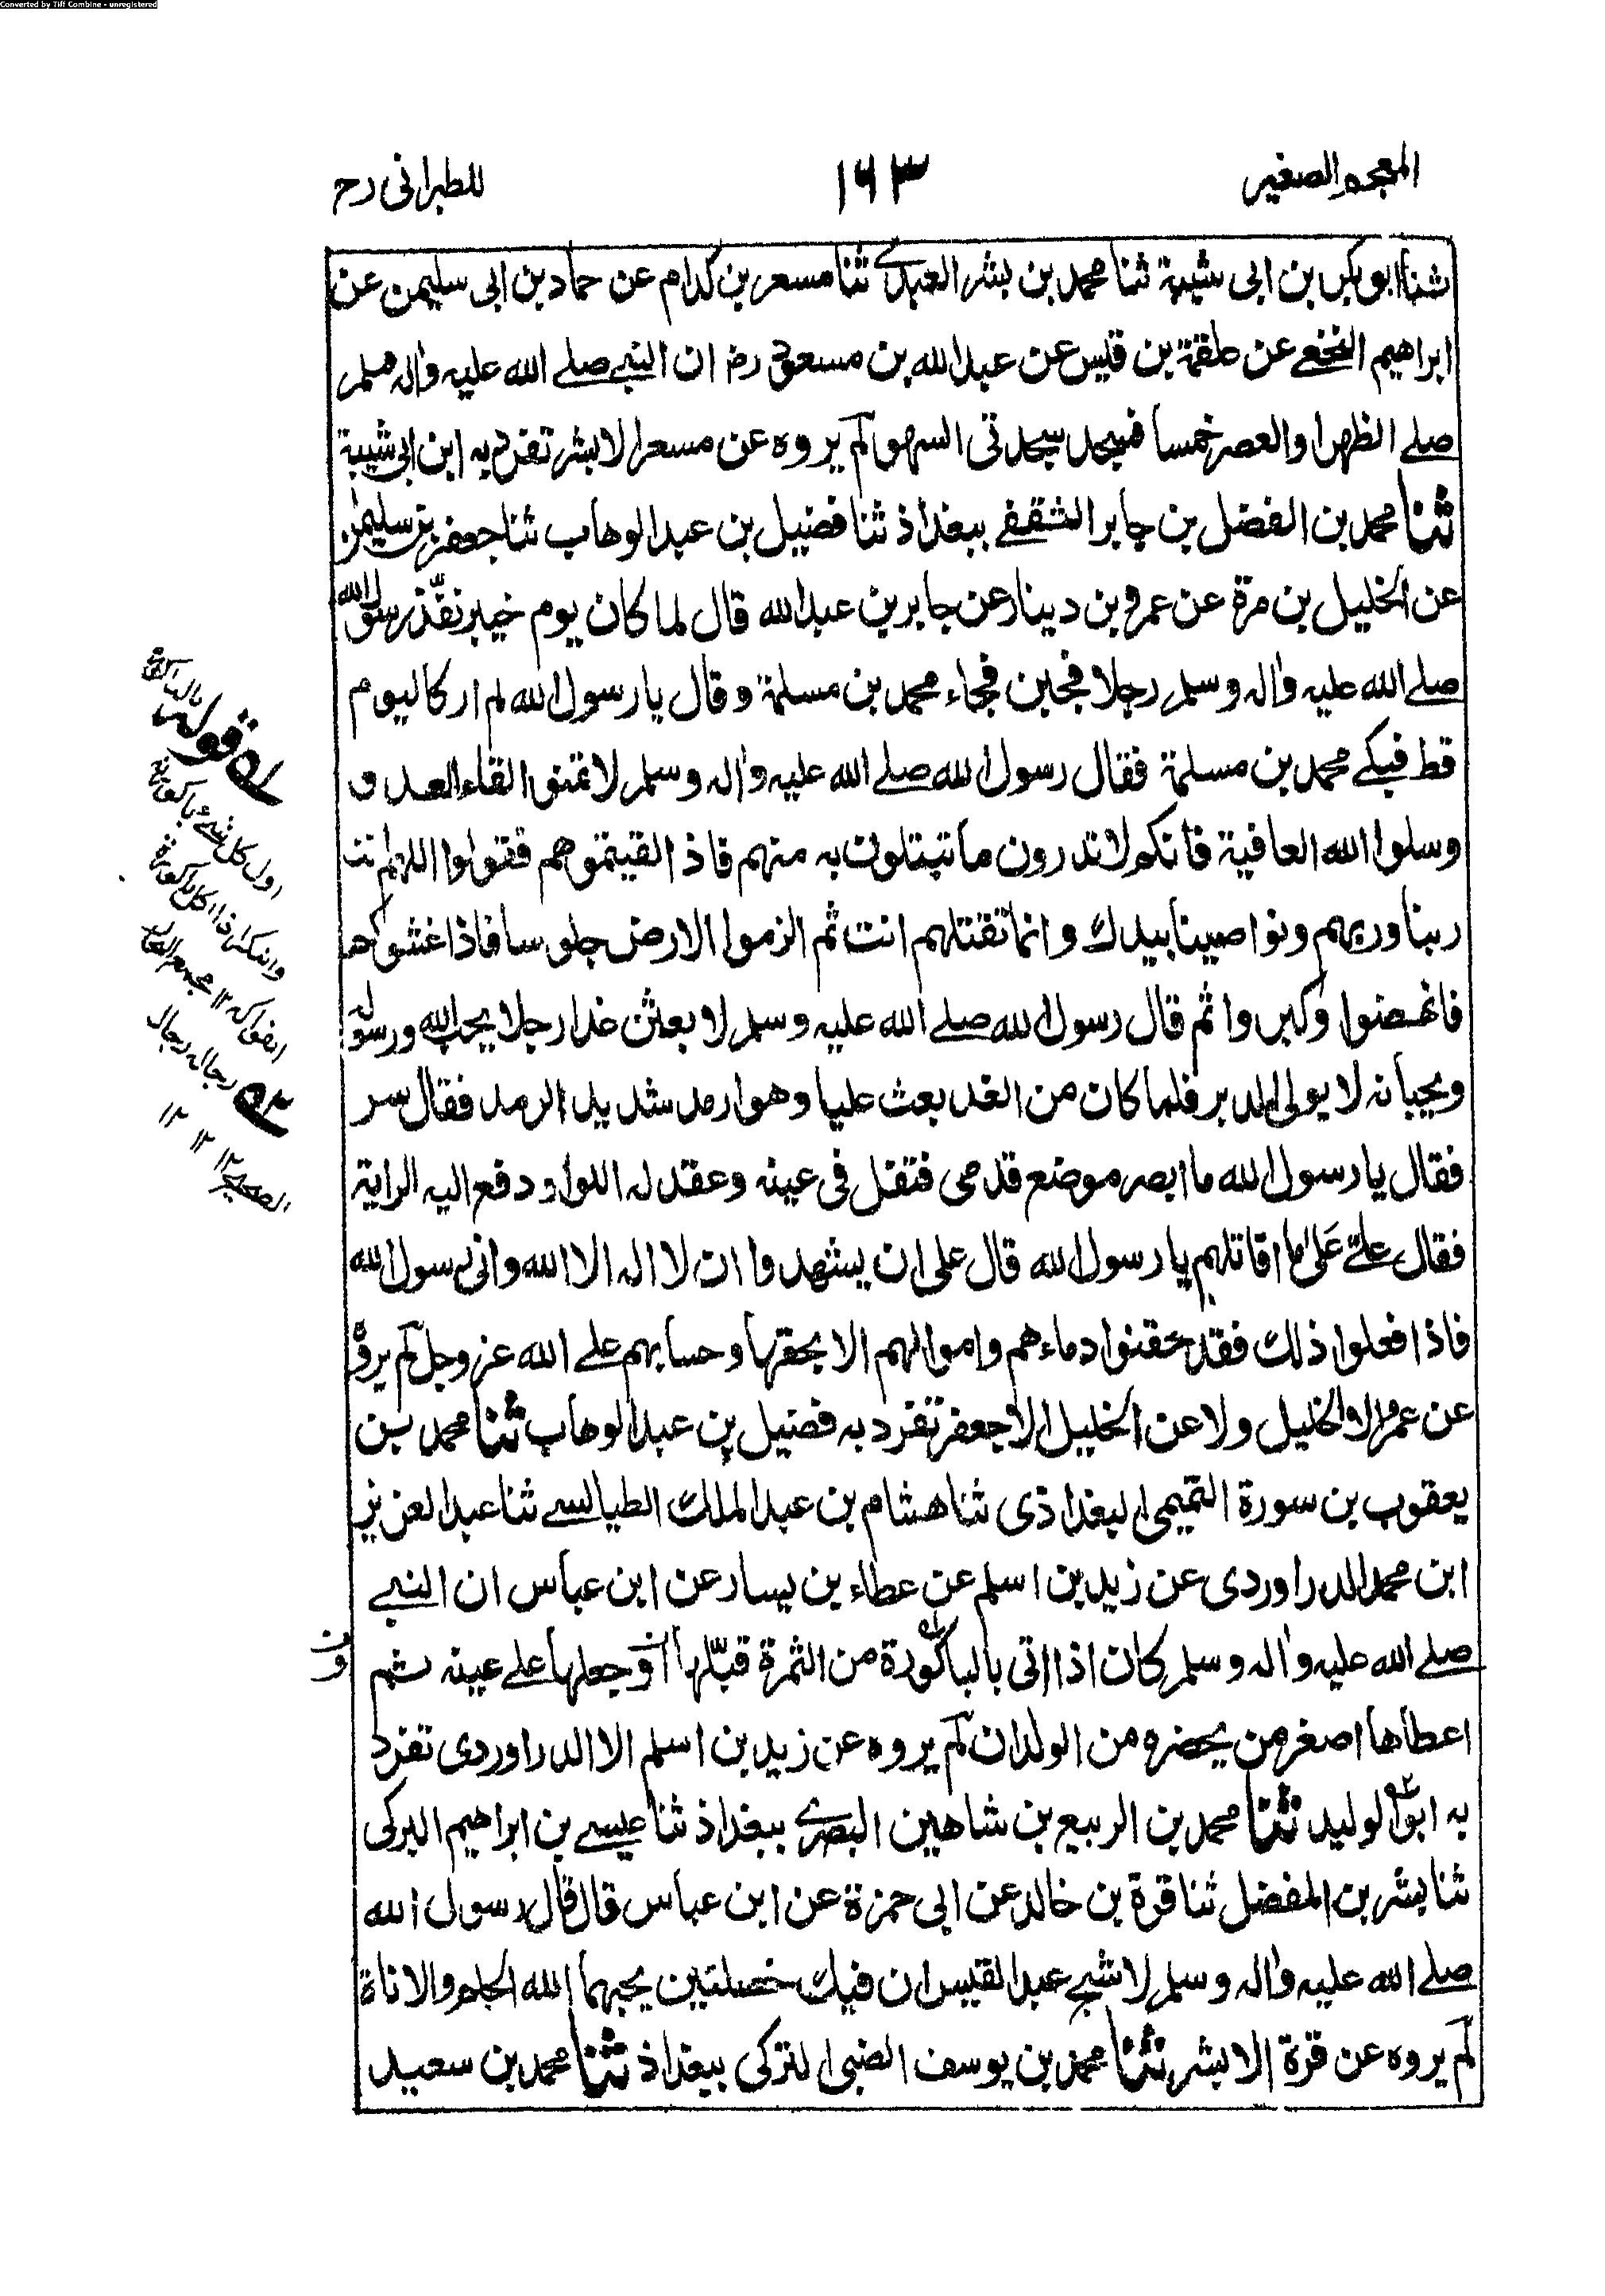 Converted by Tiff Combine - unregistered
المعجم الصغير
١٦٣
للطبرانی رح
ثنا ابو بكر بن ابی شيبة ثنا محمد بن بشر العبدے ثنا مسعر بن كدام عن حماد بن ابی سليمن عن
ابراهيم النخعے عن علقمة بن قيس عن عبد الله بن مسعود رض ان النبے صلے الله عليه واله وسلم
صلے الظهر او العصر خمسا فسجد سجدتی السهو لم يروه عن مسعر الا بشر تفرد به ابن ابی شيبة
ثنا محمد بن الفضل بن جابر الثقفے ببغداذ ثنا فضيل بن عبد الوهاب ثنا جعفر بن سليمن
عن الخليل بن مرة عن عمرو بن دينار عن جابر بن عبد الله قال لما كان يوم خيبر نفّذ رسول الله
صلے الله عليه واله وسلم رجلا فجبن فجاء محمد بن مسلمة وقال يا رسول الله لم ار كاليوم
قط فبكے محمد بن مسلمة فقال رسول الله صلے الله عليه واله وسلم لا تمنوا لقاء العدو
وسلوا الله العافية فانكم لا تدرون ما تبتلون به منهم فاذا لقيتموهم فقولوا اللهم انت
ربنا وربهم ونواصينا بيدك وانما تقتلهم انت ثم الزموا الارض جلوسا فاذا غشوكم
فانهضوا وكبروا ثم قال رسول الله صلے الله عليه وسلم لابعثن غدا رجلا يحب الله ورسوله
ويحبانه لا يولی الدبر فلما كان من الغد بعث عليا وهو ارمد شديد الرمد فقال سر
فقال يا رسول الله ما ابصر موضع قدمی فتفل فی عينه وعقد له اللواء ودفع اليه الراية
فقال علےّ عَلیٰ ما اقاتلهم يا رسول الله قال علی ان يشهدوا ان لا اله الا الله وانی رسول الله
فاذا فعلوا ذلك فقد حقنوا دماءهم واموالهم الا بحقها وحسابهم علے الله عز وجل لم يرو
عن عمرو الا الخليل ولا عن الخليل الا جعفر تفرد به فضيل بن عبد الوهاب ثنا محمد بن
يعقوب بن سورة التميمی البغداذی ثنا هشام بن عبد الملك الطيالسے ثنا عبد العزيز
ابن محمد الدراوردی عن زيد بن اسلم عن عطاء بن يسار عن ابن عباس ان النبے
صلے الله عليه واله وسلم كان اذا اتی بالباكورة من الثمرة قبّلها او جعلها علے عينه ثم
اعطاها اصغر من يحضره من الولدان لم يروه عن زيد بن اسلم الا الدراوردی تفرد
به ابو الوليد ثنا محمد بن الربيع بن شاهين البصرے ببغداذ ثنا عيسے بن ابراهيم البركی
ثنا بشر بن المفضل ثنا قرة بن خالد عن ابی حمزة عن ابن عباس قال قال رسول الله
صلے الله عليه واله وسلم لاشج عبد القيس ان فيك خصلتين يحبهما الله الحلم والاناة
لم يروه عن قرة الا بشر ثنا محمد بن يوسف الضبی التركی ببغداذ ثنا محمد بن سعيد
قوله
اول كل شئ باكورته
رجاله رجال
الصحيح ١٢ ١٢ ١٢